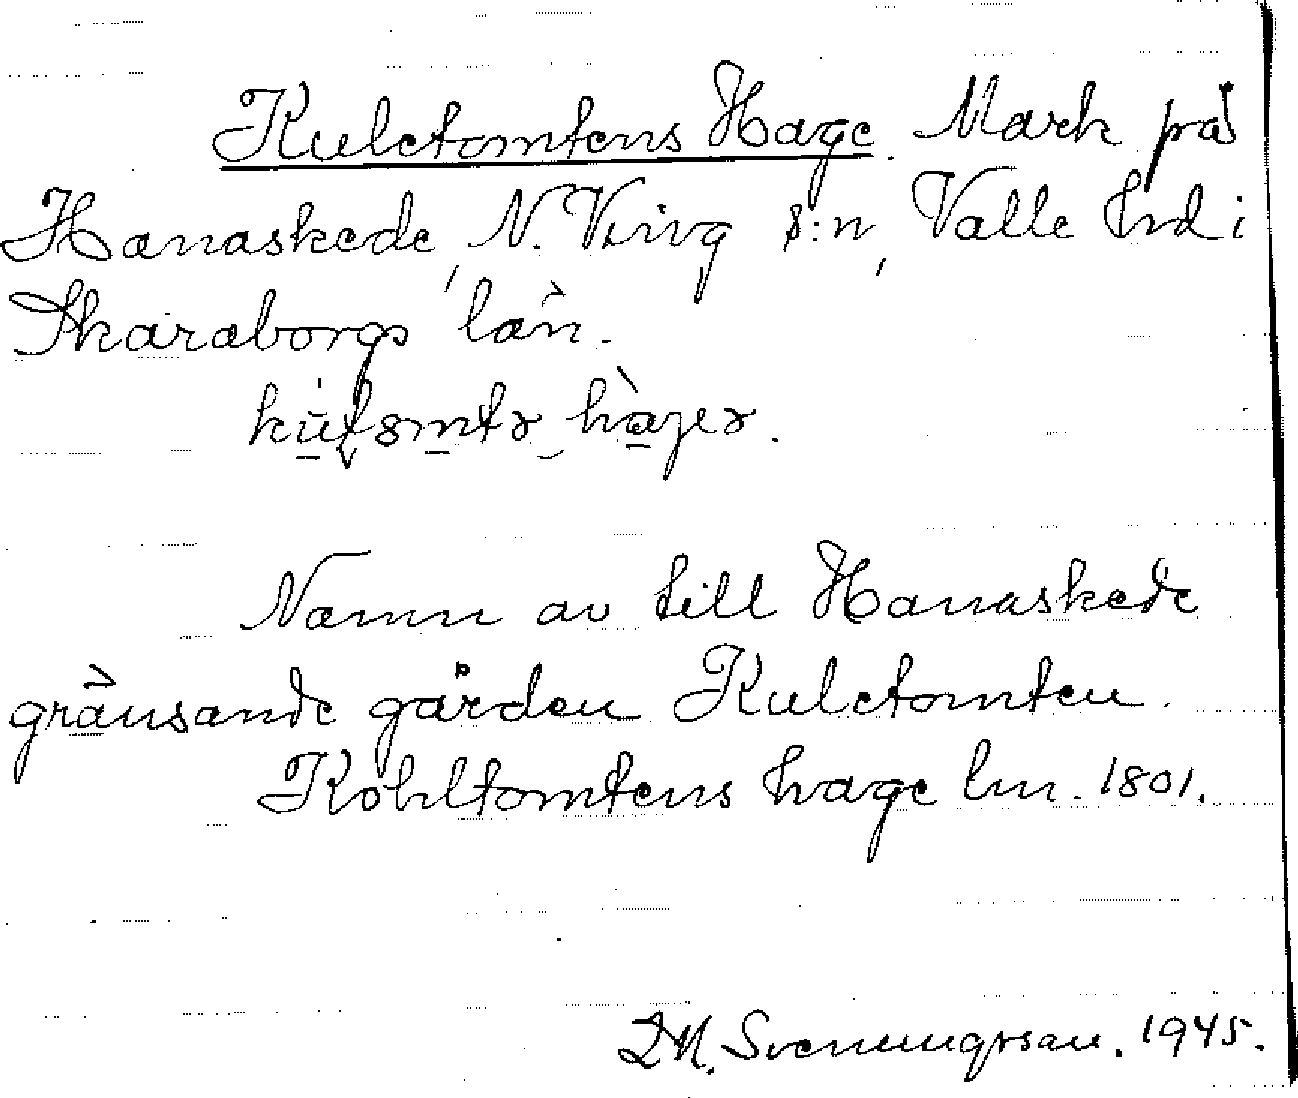 Kuletomtens Hage. Mark på
Hanaskede, N. Ving s:n, Valle hrd i
Skaraborgs län.
Namn av till Hanaskede
gränsande gården Kuletomten.
Kohltomtens hage lm. 1801.
Svenungsson. 1945.